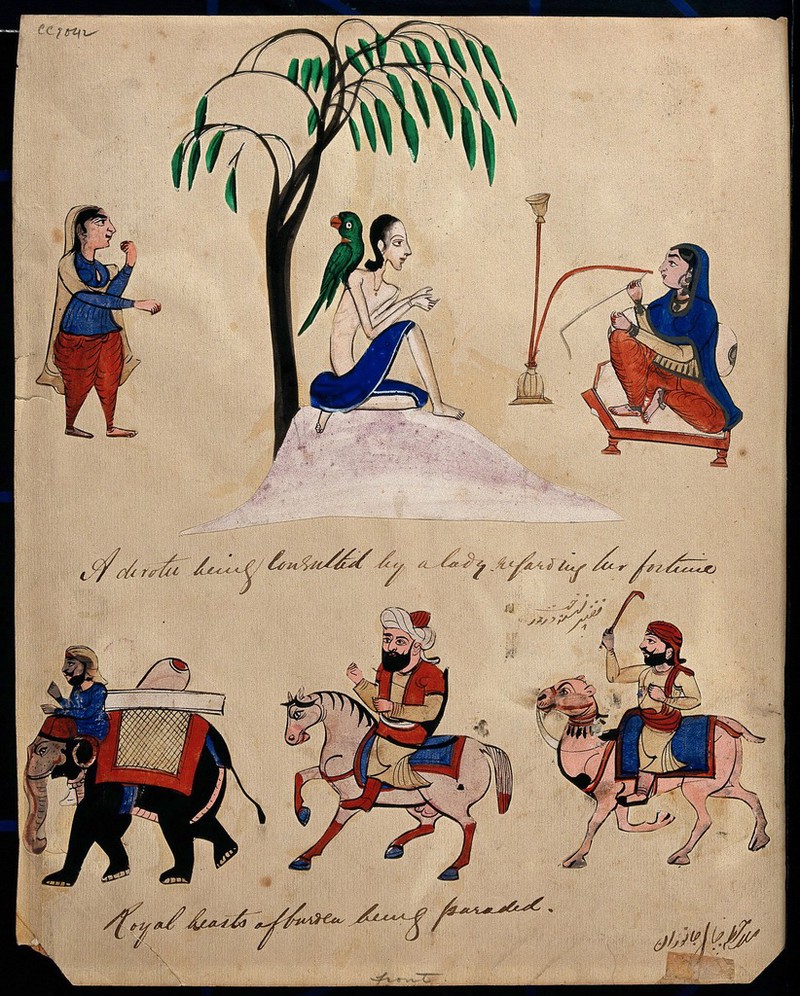 CC9042
A devotee being Consulted by a lady regarding her fortune
فقیر
Royal beasts of burden being paraded.
جانوران
front